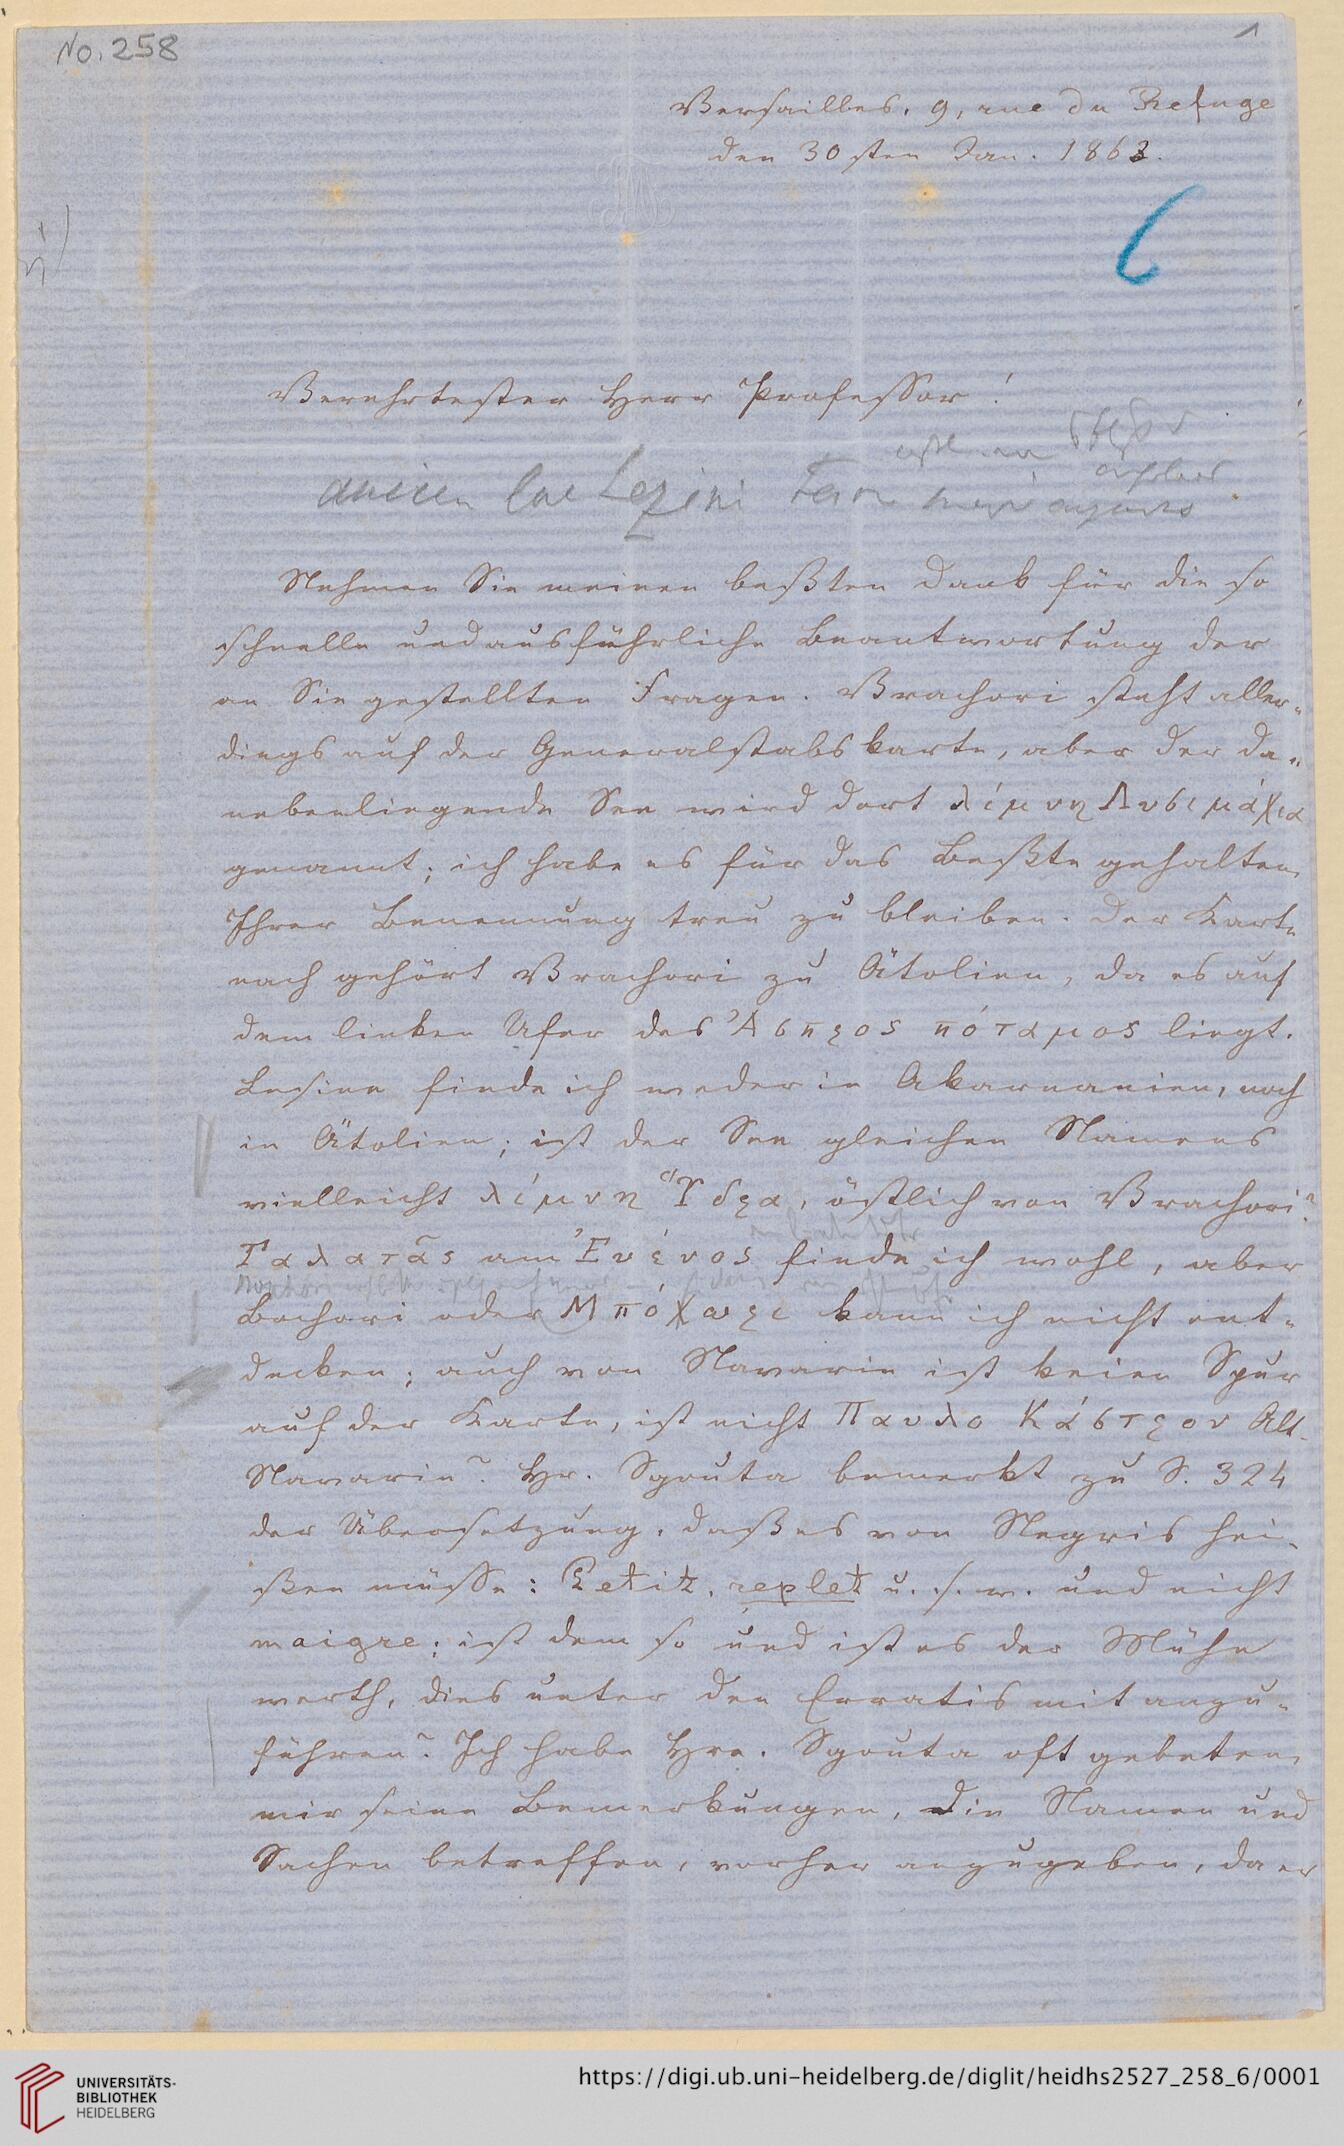 No. 258
1
Versailles, 9, rue du Refuge
den 30sten Jan. 1863.
6
Verehrtester Herr Professor!
ancien lac Lezini
Nehmen Sie meinen beßten Dank für die so
schnelle und ausführliche Beantwortung der
an Sie gestellten Fragen. Vrachori steht aller-
dings auf der Generalstabskarte, aber der da-
nebenliegende See wird dort λίμνη Λυσιμάχια
genannt; ich habe es für das Beßte gehalten,
Ihrer Benennung treu zu bleiben. Der Karte
nach gehört Vrachori zu Ätolien, da es auf
dem linken Ufer des Ἄσπρος πόταμος liegt.
Lesine finde ich weder in Akarnanien, noch
in Ätolien; ist der See gleichen Namens
vielleicht λίμνη Ὕδρα, östlich von Vrachori?
Γαλατᾶς am Ἐυένος finde ich wohl, aber
Bochori oder Μπόχωρι kann ich nicht ent-
decken; auch von Navarin ist keine Spur
auf der Karte, ist nicht Παυλο Κάστρον Alt-
Navarin? Hr. Sgouta bemerkt zu S. 324
der Übersetzung, daß es von Negris hei-
ßen müsse: Petit, replet u. s. w. und nicht
maigre; ist dem so und ist es der Mühe
werth, dies unter den Erratis mit anzu-
führen? Ich habe Hrn. Sgouta oft gebeten,
mir seine Bemerkungen, die Namen und
Sachen betreffen, vorher anzugeben, da er
UNIVERSITÄTS-
BIBLIOTHEK
HEIDELBERG
https://digi.ub.uni-heidelberg.de/diglit/heidhs2527_258_6/0001